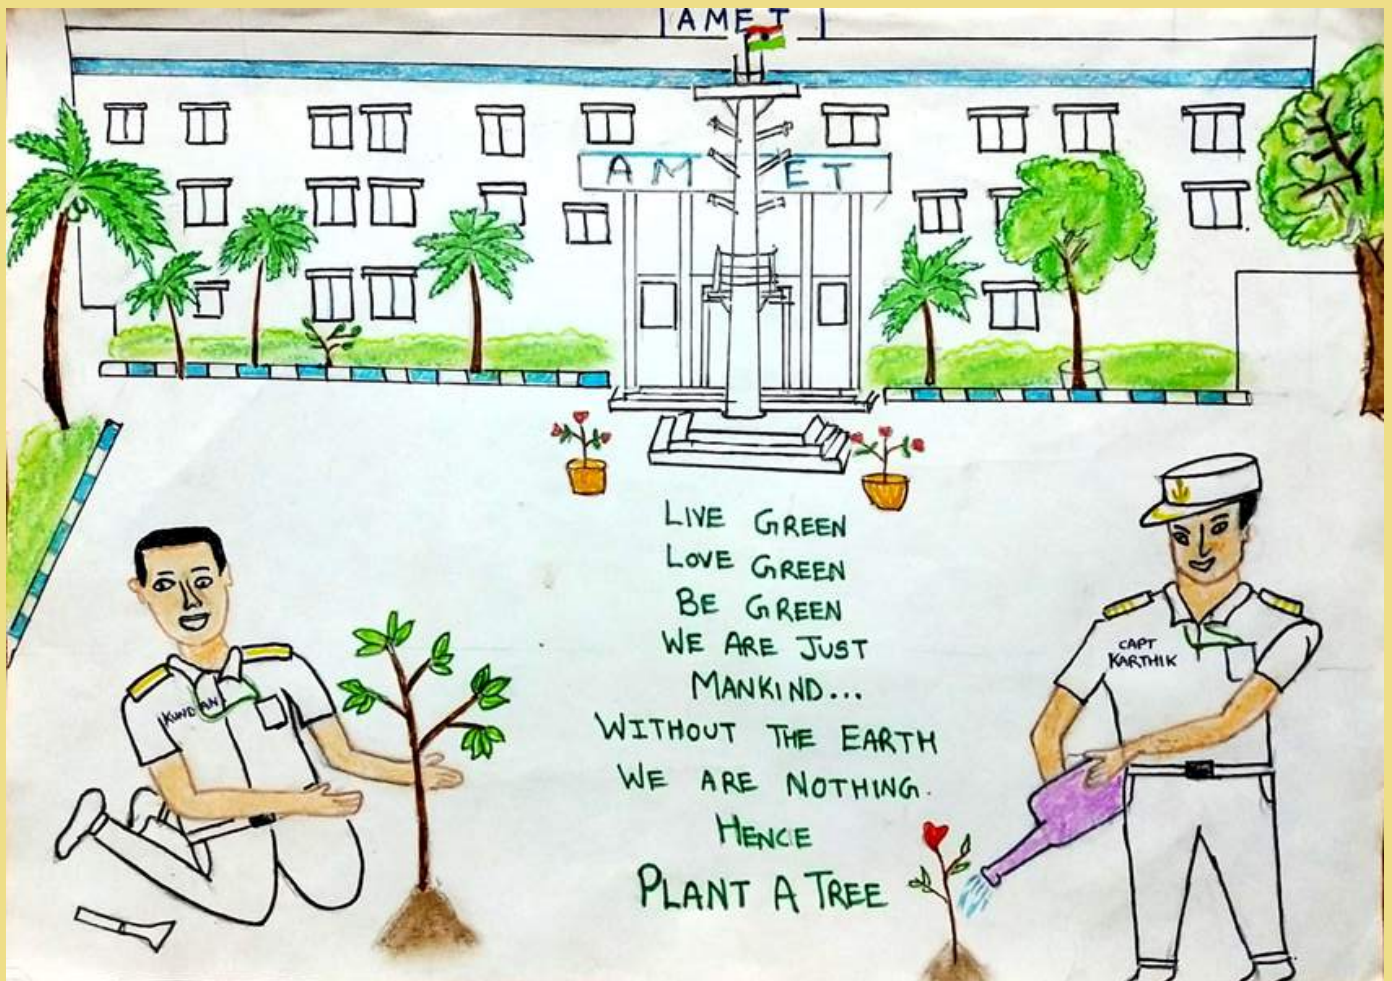 AMET
AMET
LIVE GREEN
LOVE GREEN
BE GREEN
WE ARE JUST
MANKIND...
WITHOUT THE EARTH
WE ARE NOTHING.
HENCE
PLANT A TREE
KUNDAN
CAPT
KARTHIK